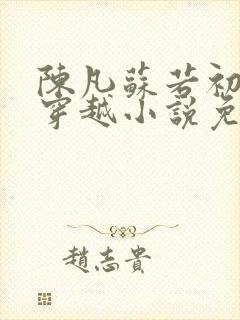 陳凡蘇若初
穿越小說免
趙志貴